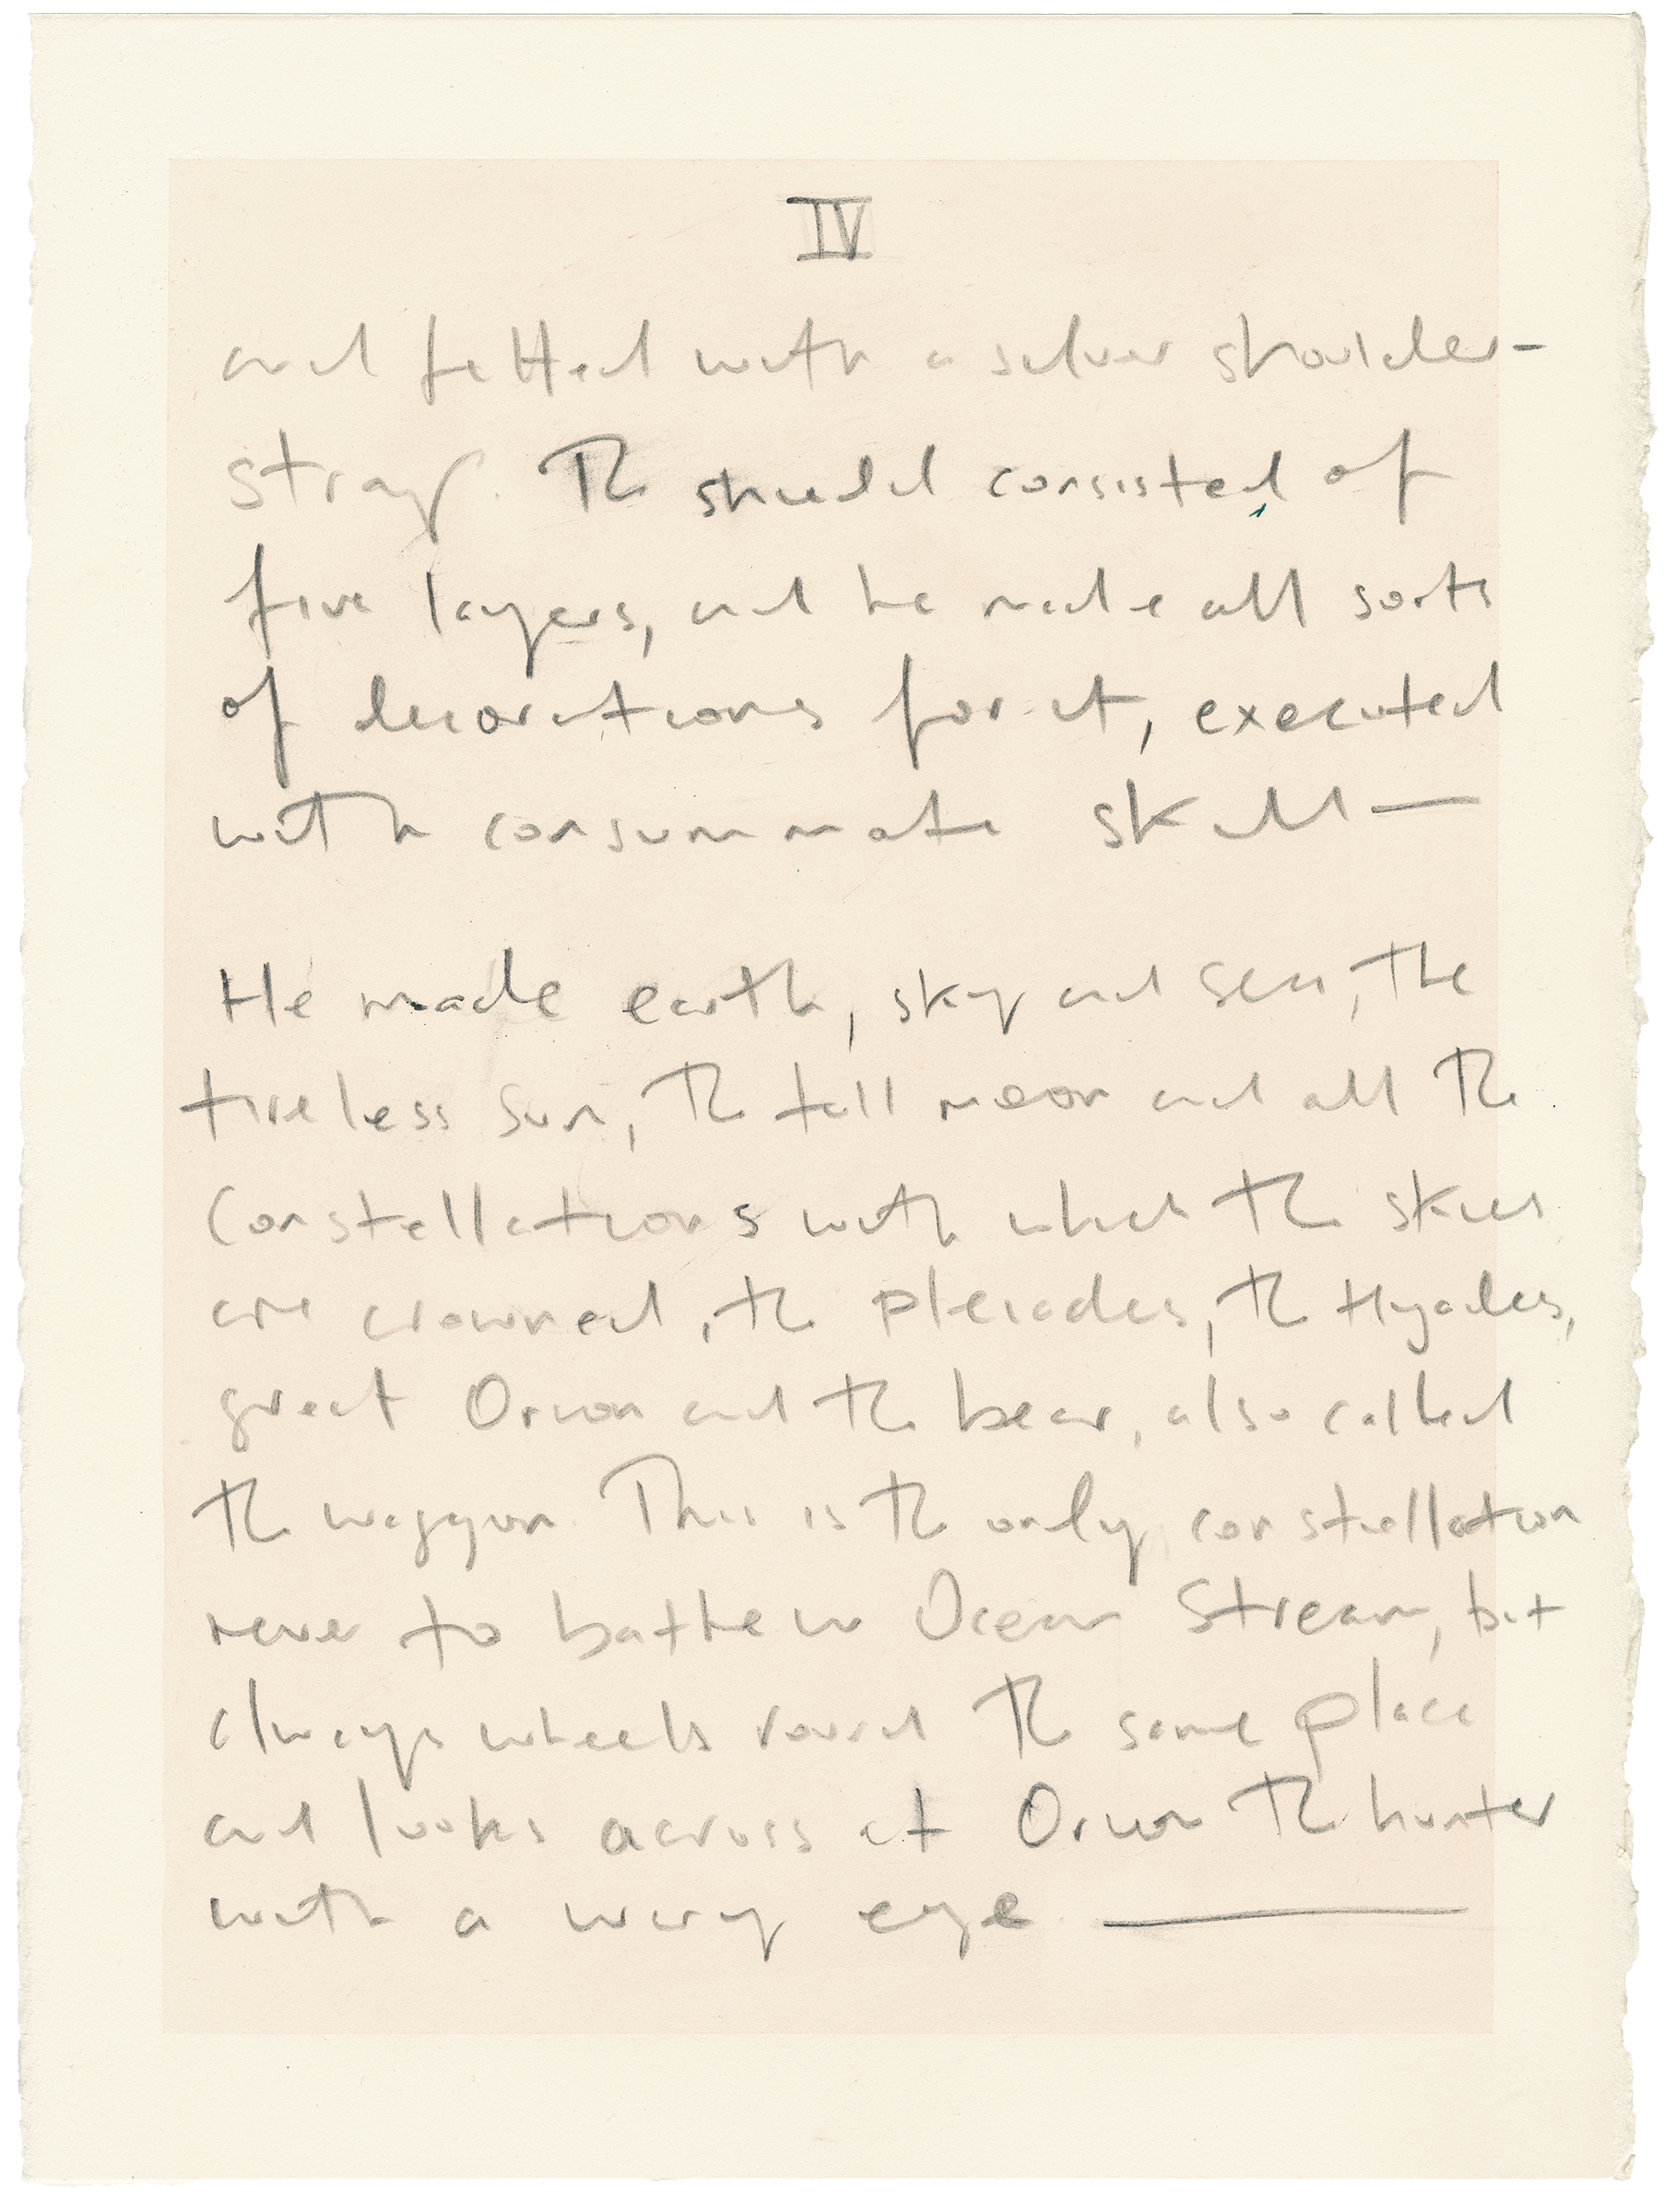 IV
and fitted with a silver shoulder-
strap. The shield consisted of
five layers, and he made all sorts
of decorations for it, executed
with consummate skill—
He made earth, sky and sea, the
tireless sun, the full moon and all the
Constellations with which the skies
are crowned, the pleiades, the Hyades,
great Orion and the bear, also called
the waggon. This is the only constellation
never to bathe in Ocean Stream, but
always wheels round the same place
and looks across at Orion the hunter
with a wary eye —